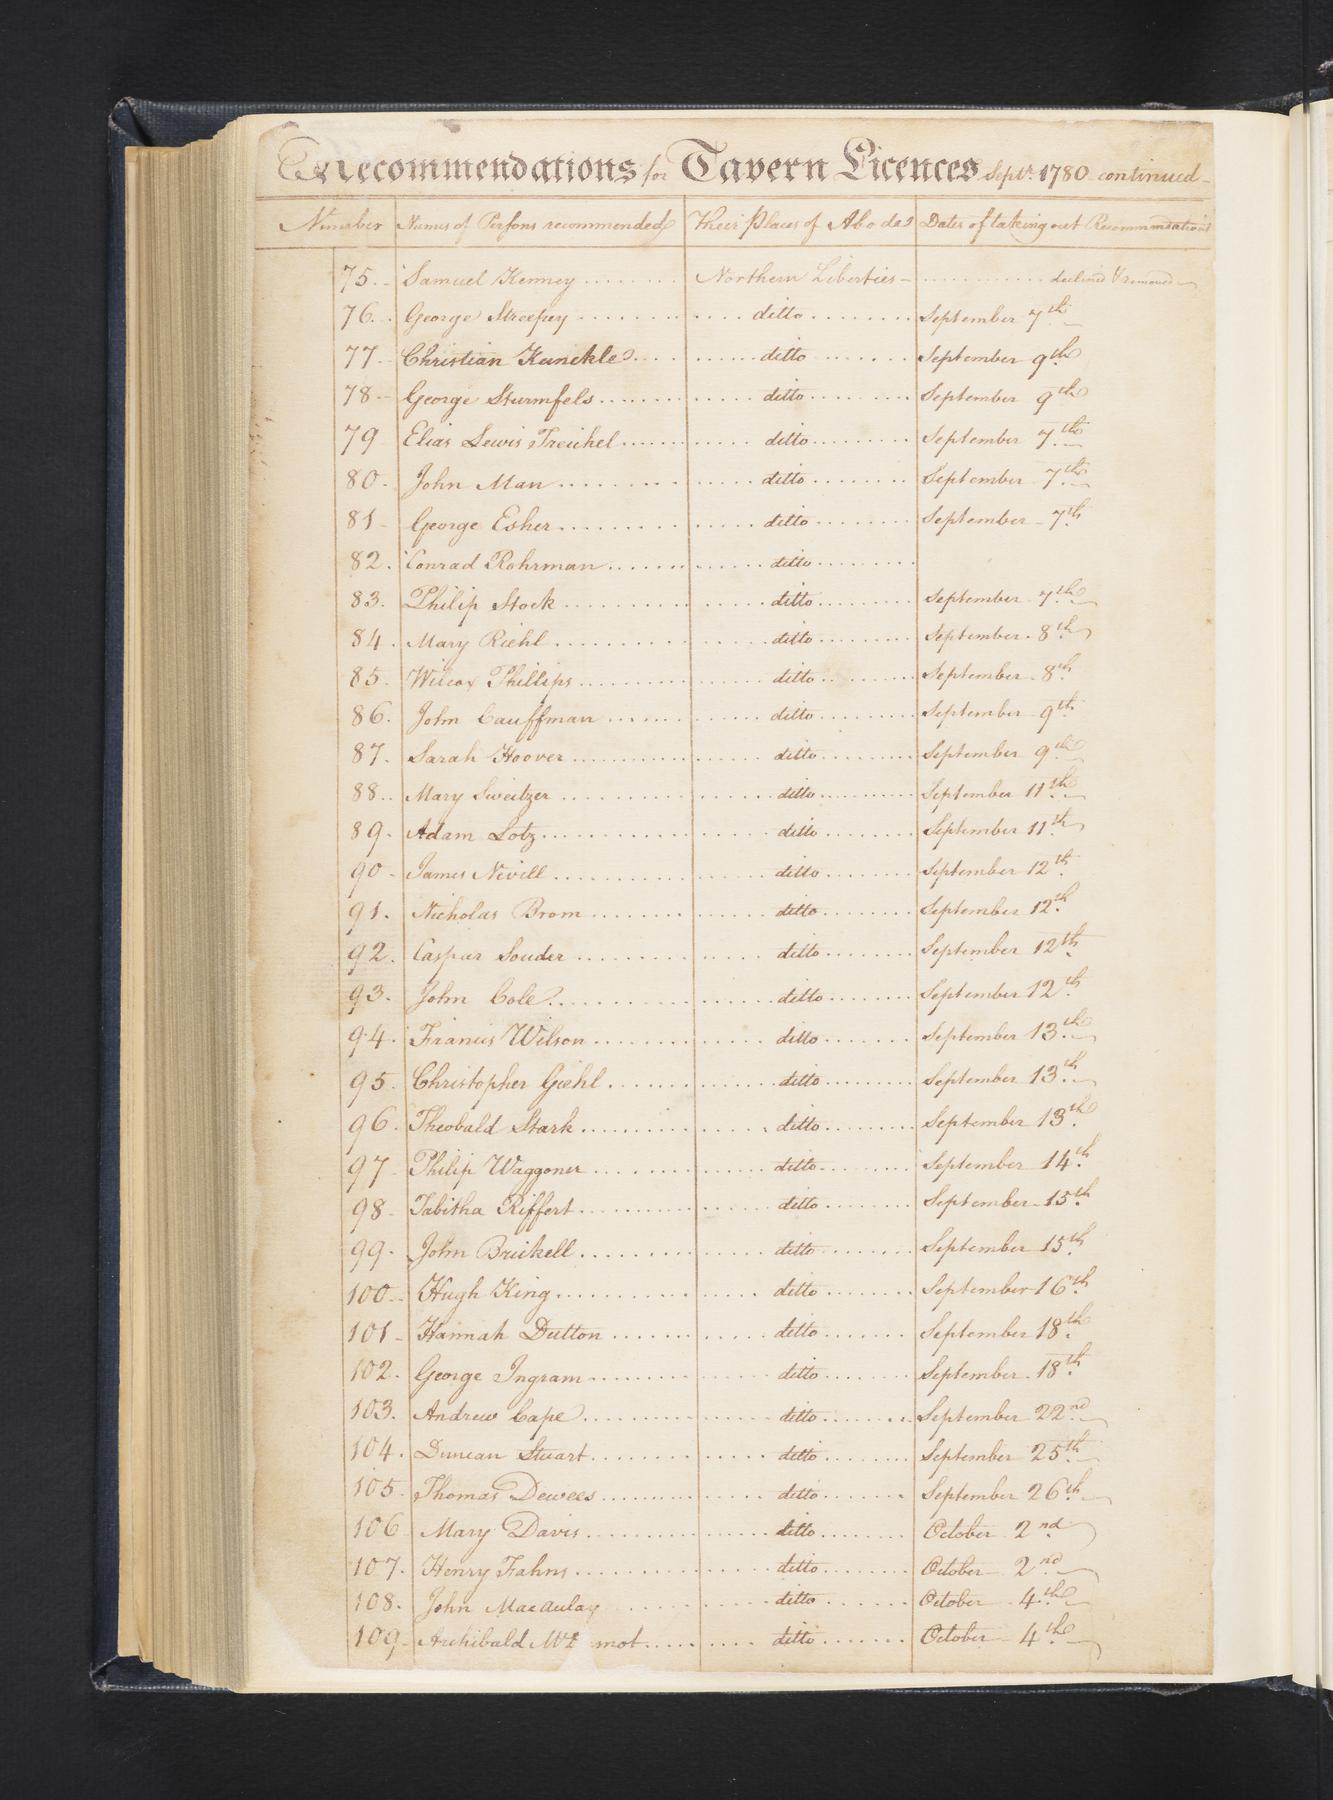 Recommendations for Tavern Licences Septr. 1780 continued
Number Names of Persons recommended Their Places of Abodes Dates of taking out Recommendations
75. Samuel Kenney ........ Northern Liberties ............ declined & removed
76. George Streepey ........ ditto ........ September 7th
77. Christian Kunckle ........ ditto ........ September 9th
78 George Sturmfels ........ ditto ........ September 9th
79 Elias Lewis Treichel ........ ditto ........ September 7th
80. John Man ........ ditto ........ September 7th
81 George Esher ........ ditto ........ September 7th
82. Conrad Rohrman ........ ditto ........
83. Philip Stock ........ ditto ........ September 7th
84. Mary Riehl ........ ditto ........ September 8th
85. Wilcox Phillips ........ ditto ........ September 8th
86. John Cauffman ........ ditto ........ September 9th
87. Sarah Hoover ........ ditto ........ September 9th
88. Mary Sweitzer ........ ditto ........ September 11th
89. Adam Lotz ........ ditto ........ September 11th
90 James Nevill ........ ditto ........ September 12th
91. Nicholas Brom ........ ditto ........ September 12th
92. Caspar Souder ........ ditto ........ September 12th
93. John Cole ........ ditto ........ September 12th
94. Francis Wilson ........ ditto ........ September 13th
95. Christopher Giehl ........ ditto ........ September 13th
96. Theobald Stark ........ ditto ........ September 13th
97 Philip Waggoner ........ ditto ........ September 14th
98 Tabitha Riffert ........ ditto ........ September 15th
99. John Brickell ........ ditto ........ September 15th
100 Hugh King ........ ditto ........ September 16th
101 Hannah Dutton ........ ditto ........ September 18th
102. George Ingram ........ ditto ........ September 18th
103. Andrew Cape ........ ditto ........ September 22nd
104. Duncan Stuart ........ ditto ........ September 25th
105. Thomas Dewees ........ ditto ........ September 26th
106 Mary Davis ........ ditto ........ October 2nd
107. Henry Fahns ........ ditto ........ October 2nd
108. John Macaulay ........ ditto ........ October 4th
109. Archibald mot ........ ditto ........ October 4th